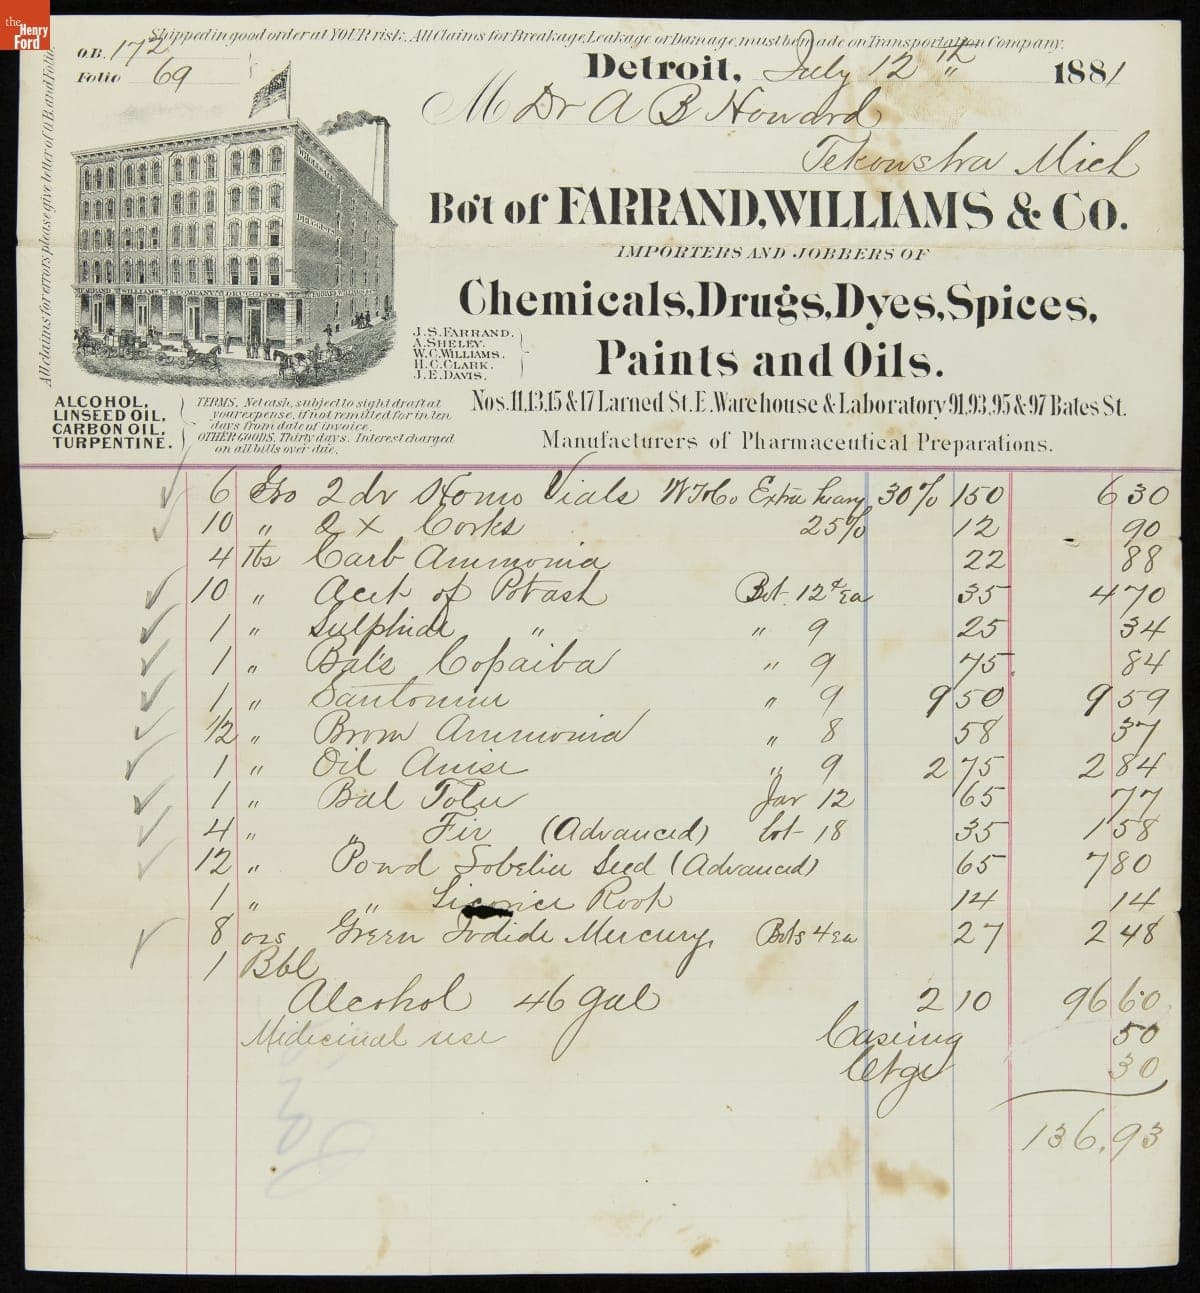 the Henry Ford
Shipped in good order at YOUR risk. All Claims for Breakage, Leakage or Damage, must be made on Transportation Company.
O.B. 172
Folio 69
All claims for errors please give letter of O.B. and Folio.
Detroit, July 12th 1881
M Dr A B Howard
Tekonsha Mich
Bo't of FARRAND, WILLIAMS & Co.
IMPORTERS AND JOBBERS OF
Chemicals, Drugs, Dyes, Spices,
Paints and Oils.
WHOLESALE
DRUGGISTS
FARRAND WILLIAMS & COMPANY DRUGGISTS FARRAND WILLIAMS & Co
J. S. FARRAND.
A. SHELEY.
W. C. WILLIAMS.
H. C. CLARK.
J. E. DAVIS.
Nos. 11, 13, 15 & 17 Larned St. E. Warehouse & Laboratory 91, 93, 95 & 97 Bates St.
Manufacturers of Pharmaceutical Preparations.
ALCOHOL,
LINSEED OIL,
CARBON OIL,
TURPENTINE.
TERMS. Net cash, subject to sight draft at
your expense, if not remitted for in ten
days from date of invoice.
OTHER GOODS, Thirty days. Interest charged
on all bills over due.
6 Gro 2 dr Homo Vials W T & Co Extra heavy 30% 150 6 30
10 " 2 X Corks 25% 12 90
4 lbs Carb Ammonia 22 88
10 " Acet of Potash Bot. 12¢ ea 35 4 70
1 " Sulphide " " 9 25 34
1 " Bals Copaiba " 9 75 84
1 " Santonin " 9 9 50 9 59
1/2 " Brom Ammonia " 8 58 37
1 " Oil Anise " 9 2 75 2 84
1 " Bal Tolu Jar 12 65 77
4 " " Fir (Advanced) bot 18 35 1 58
12 " Powd Lobelia Seed (Advanced) 65 7 80
1 " " Licorice Root 14 14
8 ozs Green Iodide Mercury Bots 4 ea 27 2 48
1 Bbl
Alcohol 46 gal 2 10 96 60
Medicinal use Casing 50
Ctge 30
136.93